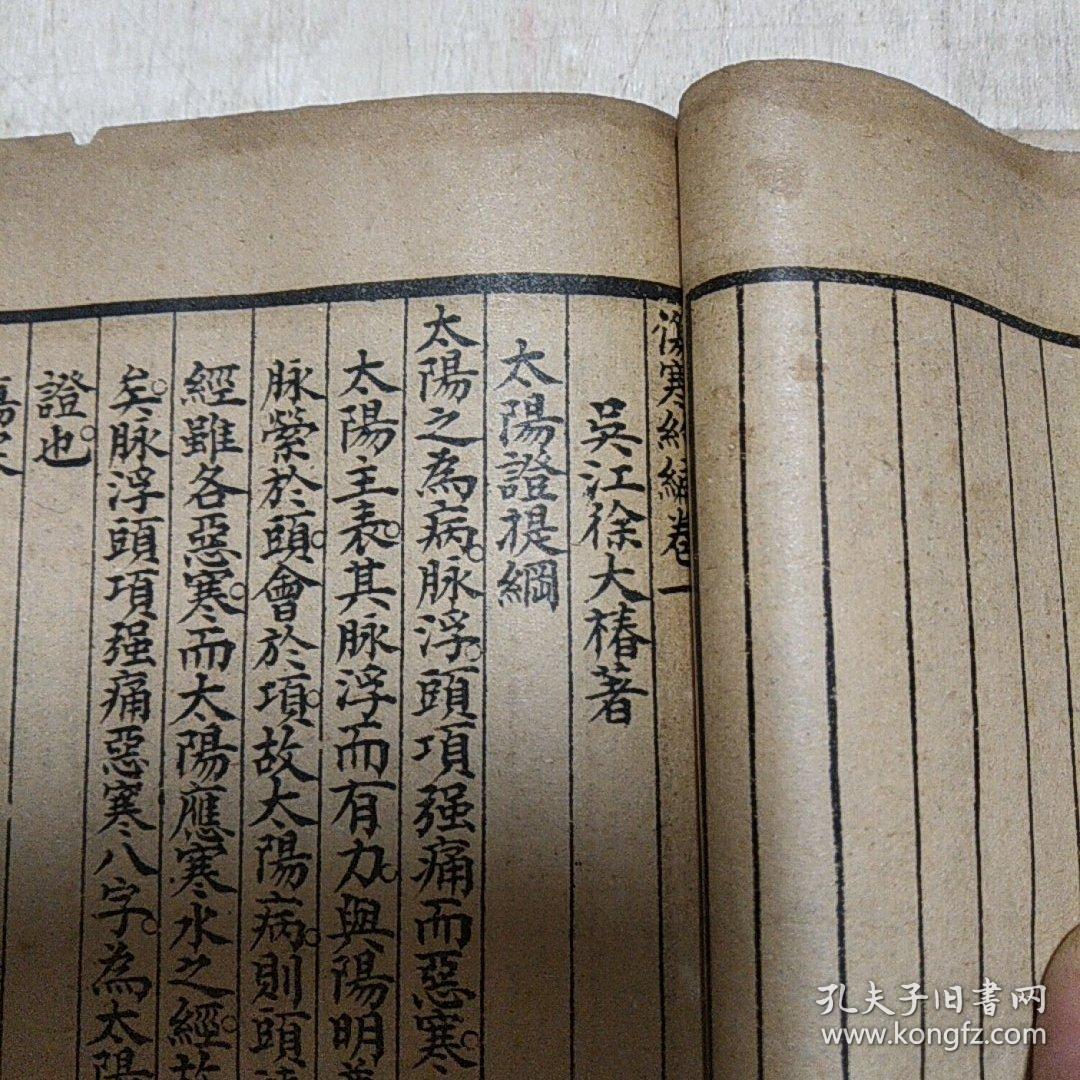 傷寒約編卷一
吳江徐大椿著
太陽證提綱
太陽之為病。脉浮。頭項强痛而惡寒。
太陽主表。其脉浮而有力。與陽明
脉縈於頭。會於項。故太陽病。則頭
經雖各惡寒。而太陽應寒水之經。故
矣。脉浮頭項强痛惡寒八字。為太陽
證也。
傷寒
孔夫子旧书网
www.kongfz.com